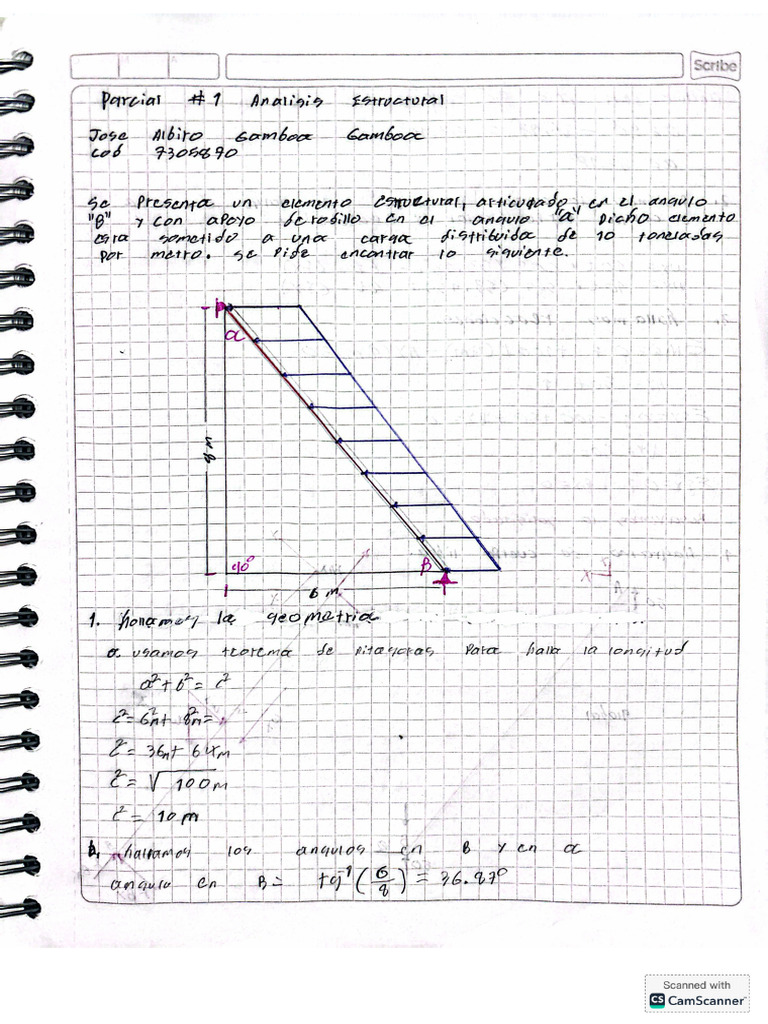 Scribe
Parcial #1 Analisis Estructural
Jose Albiro Gamboa Gamboa
cod 7305890
Se Presenta un elemento Estructural, articulado en el angulo
"B" y con apoyo de rodillo en el angulo "α" Dicho elemento
esta sometido a una carga distribuida de 10 toneladas
por metro. Se Pide encontrar lo siguiente.
α
8 m
90°
β
6 m.
1. hallamos la geometria
a usamos teorema de Pitagoras Para halla la longitud
a²+b²= c²
c²= 6²m+ 8²m=
c²= 36m+ 64m
c²= √100m
c²= 10m
b. hallamos los angulos en B y en α
angulo en B= tg⁻¹(6/8)= 36.87°
Scanned with
CS CamScanner